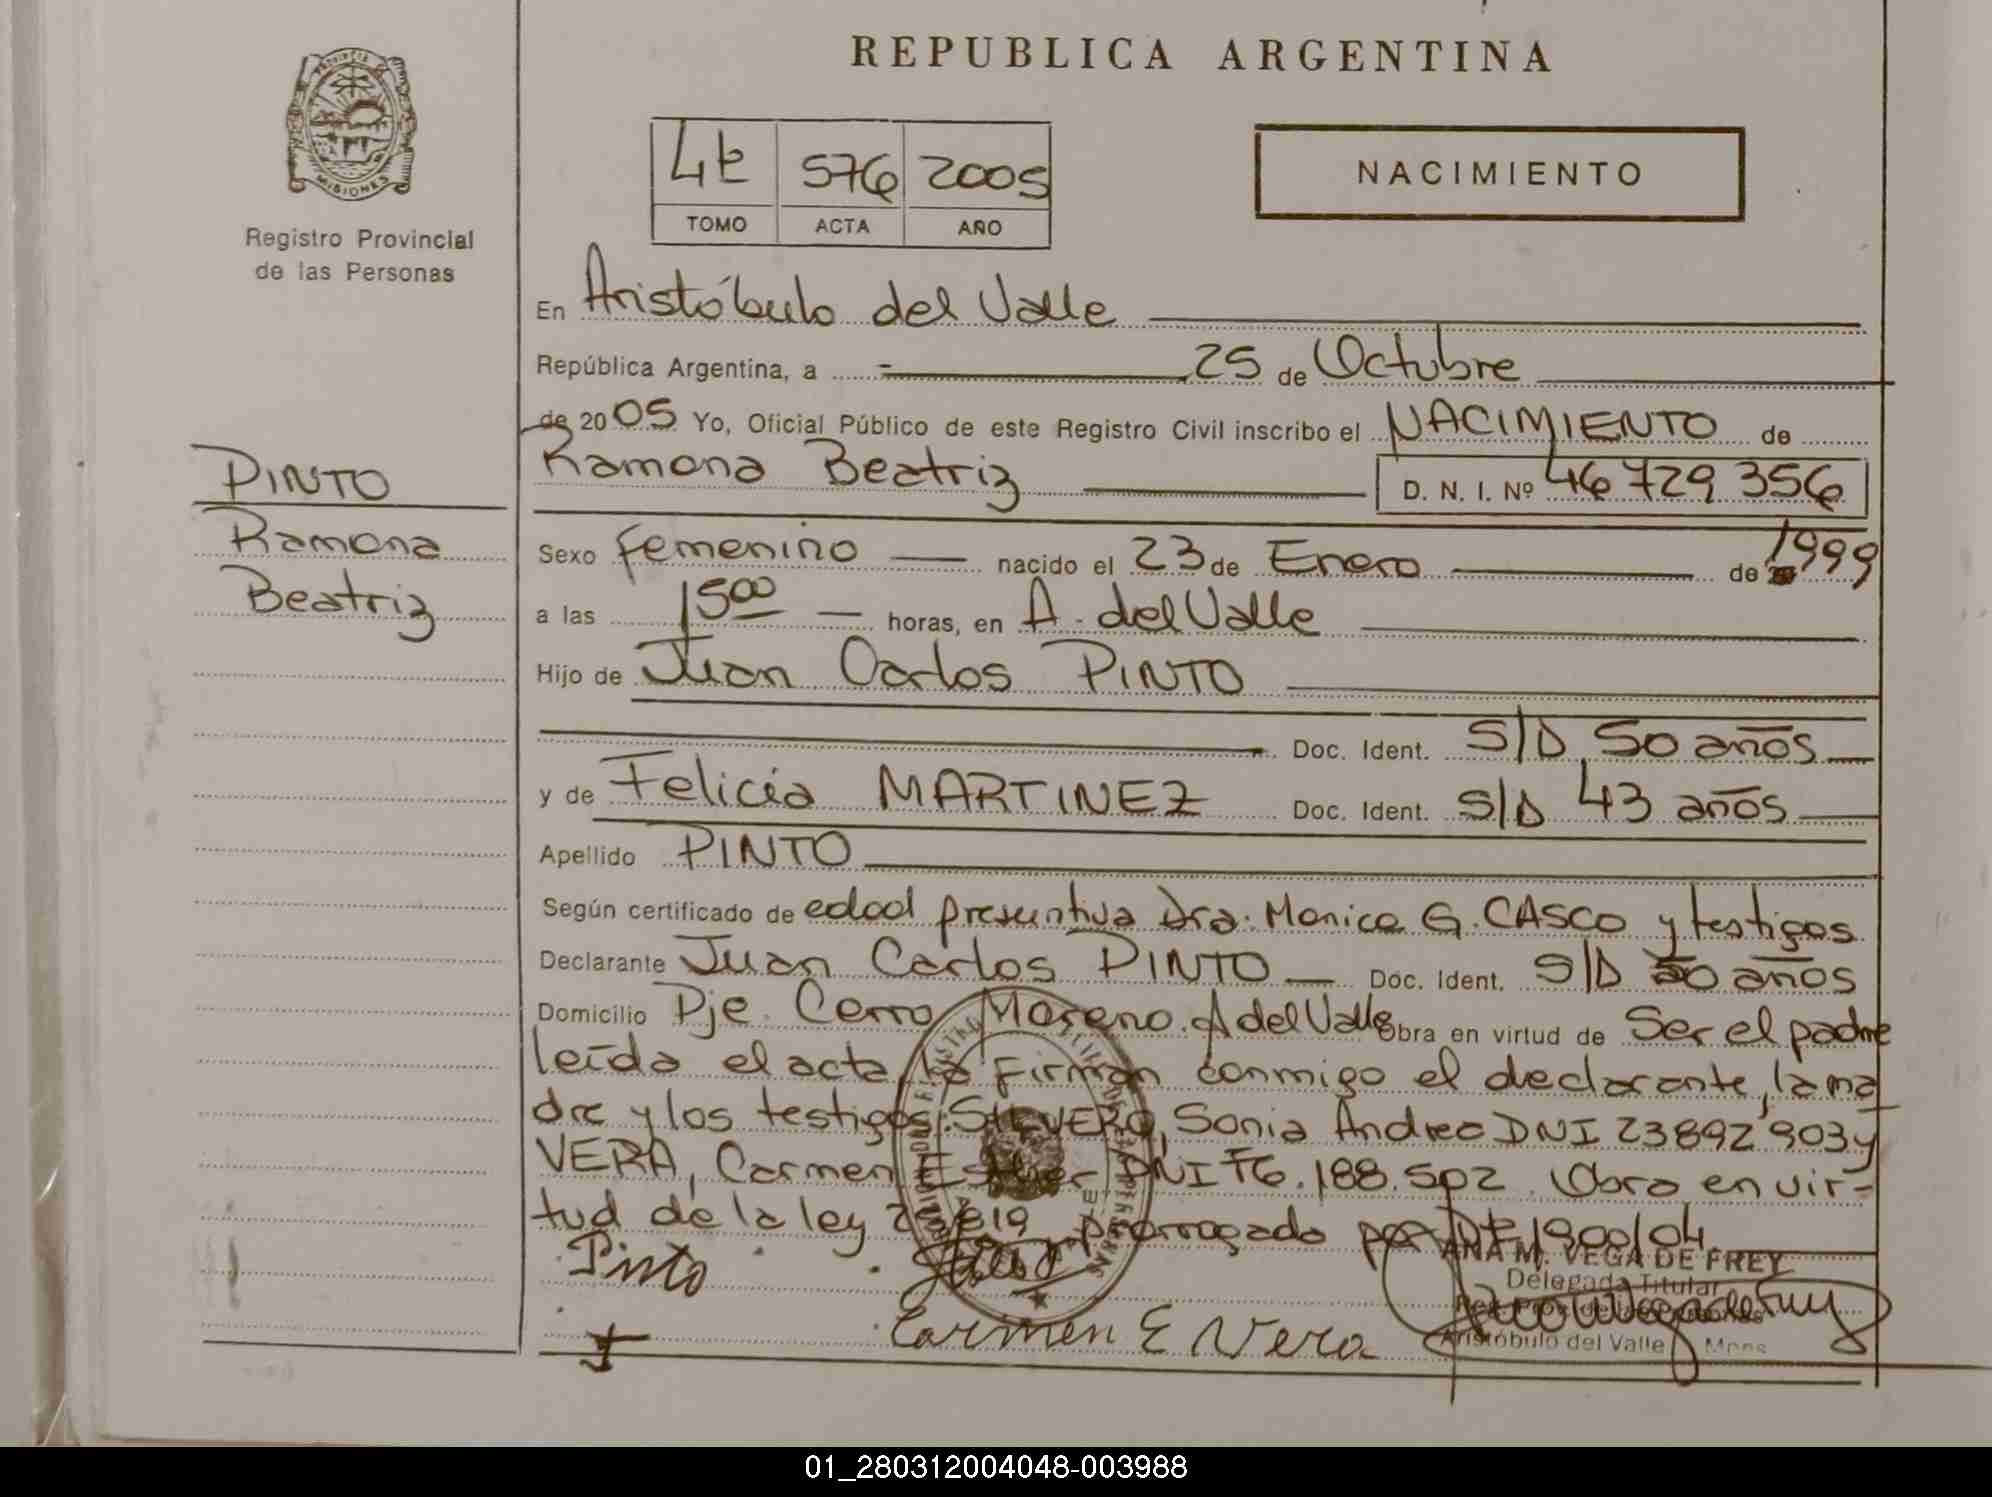 REPUBLICA ARGENTINA
PROVINCIA DE
MISIONES
Registro Provincial
de las Personas
576 2005
TOMO ACTA AÑO
NACIMIENTO
En Aristóbulo del Valle
República Argentina, a 25 de Octubre
de 2005 Yo, Oficial Público de este Registro Civil inscribo el NACIMIENTO de
PINTO
Ramona
Beatriz
Ramona Beatriz D. N. I. Nº 46 729 356
Sexo femenino nacido el 23 de Enero de 1999
a las 15 00 horas, en A. del Valle
Hijo de Juan Carlos PINTO
Doc. Ident. S/D 50 años
y de Felicia MARTINEZ Doc. Ident. S/D 43 años
Apellido PINTO
Según certificado de edad presuntiva Dra. Monica G. CASCO y testigos
Declarante Juan Carlos PINTO Doc. Ident. S/D 50 años
Domicilio Pje. Cerro Moreno. A del Valle obra en virtud de Ser el padre
leída el acta, la Firman conmigo el declarante, la ma
dre y los testigos: SILVERO, Sonia Andrea DNI 23892903 y
VERA, Carmen Esther DNI F6.188.502. Obra en vir-
tud de la ley prorrogada por 1900/04
Pinto
Carmen E Vera
ANA M. VEGA DE FREY
Delegada Titular
Aristóbulo del Valle Mnes
01_280312004048-003988